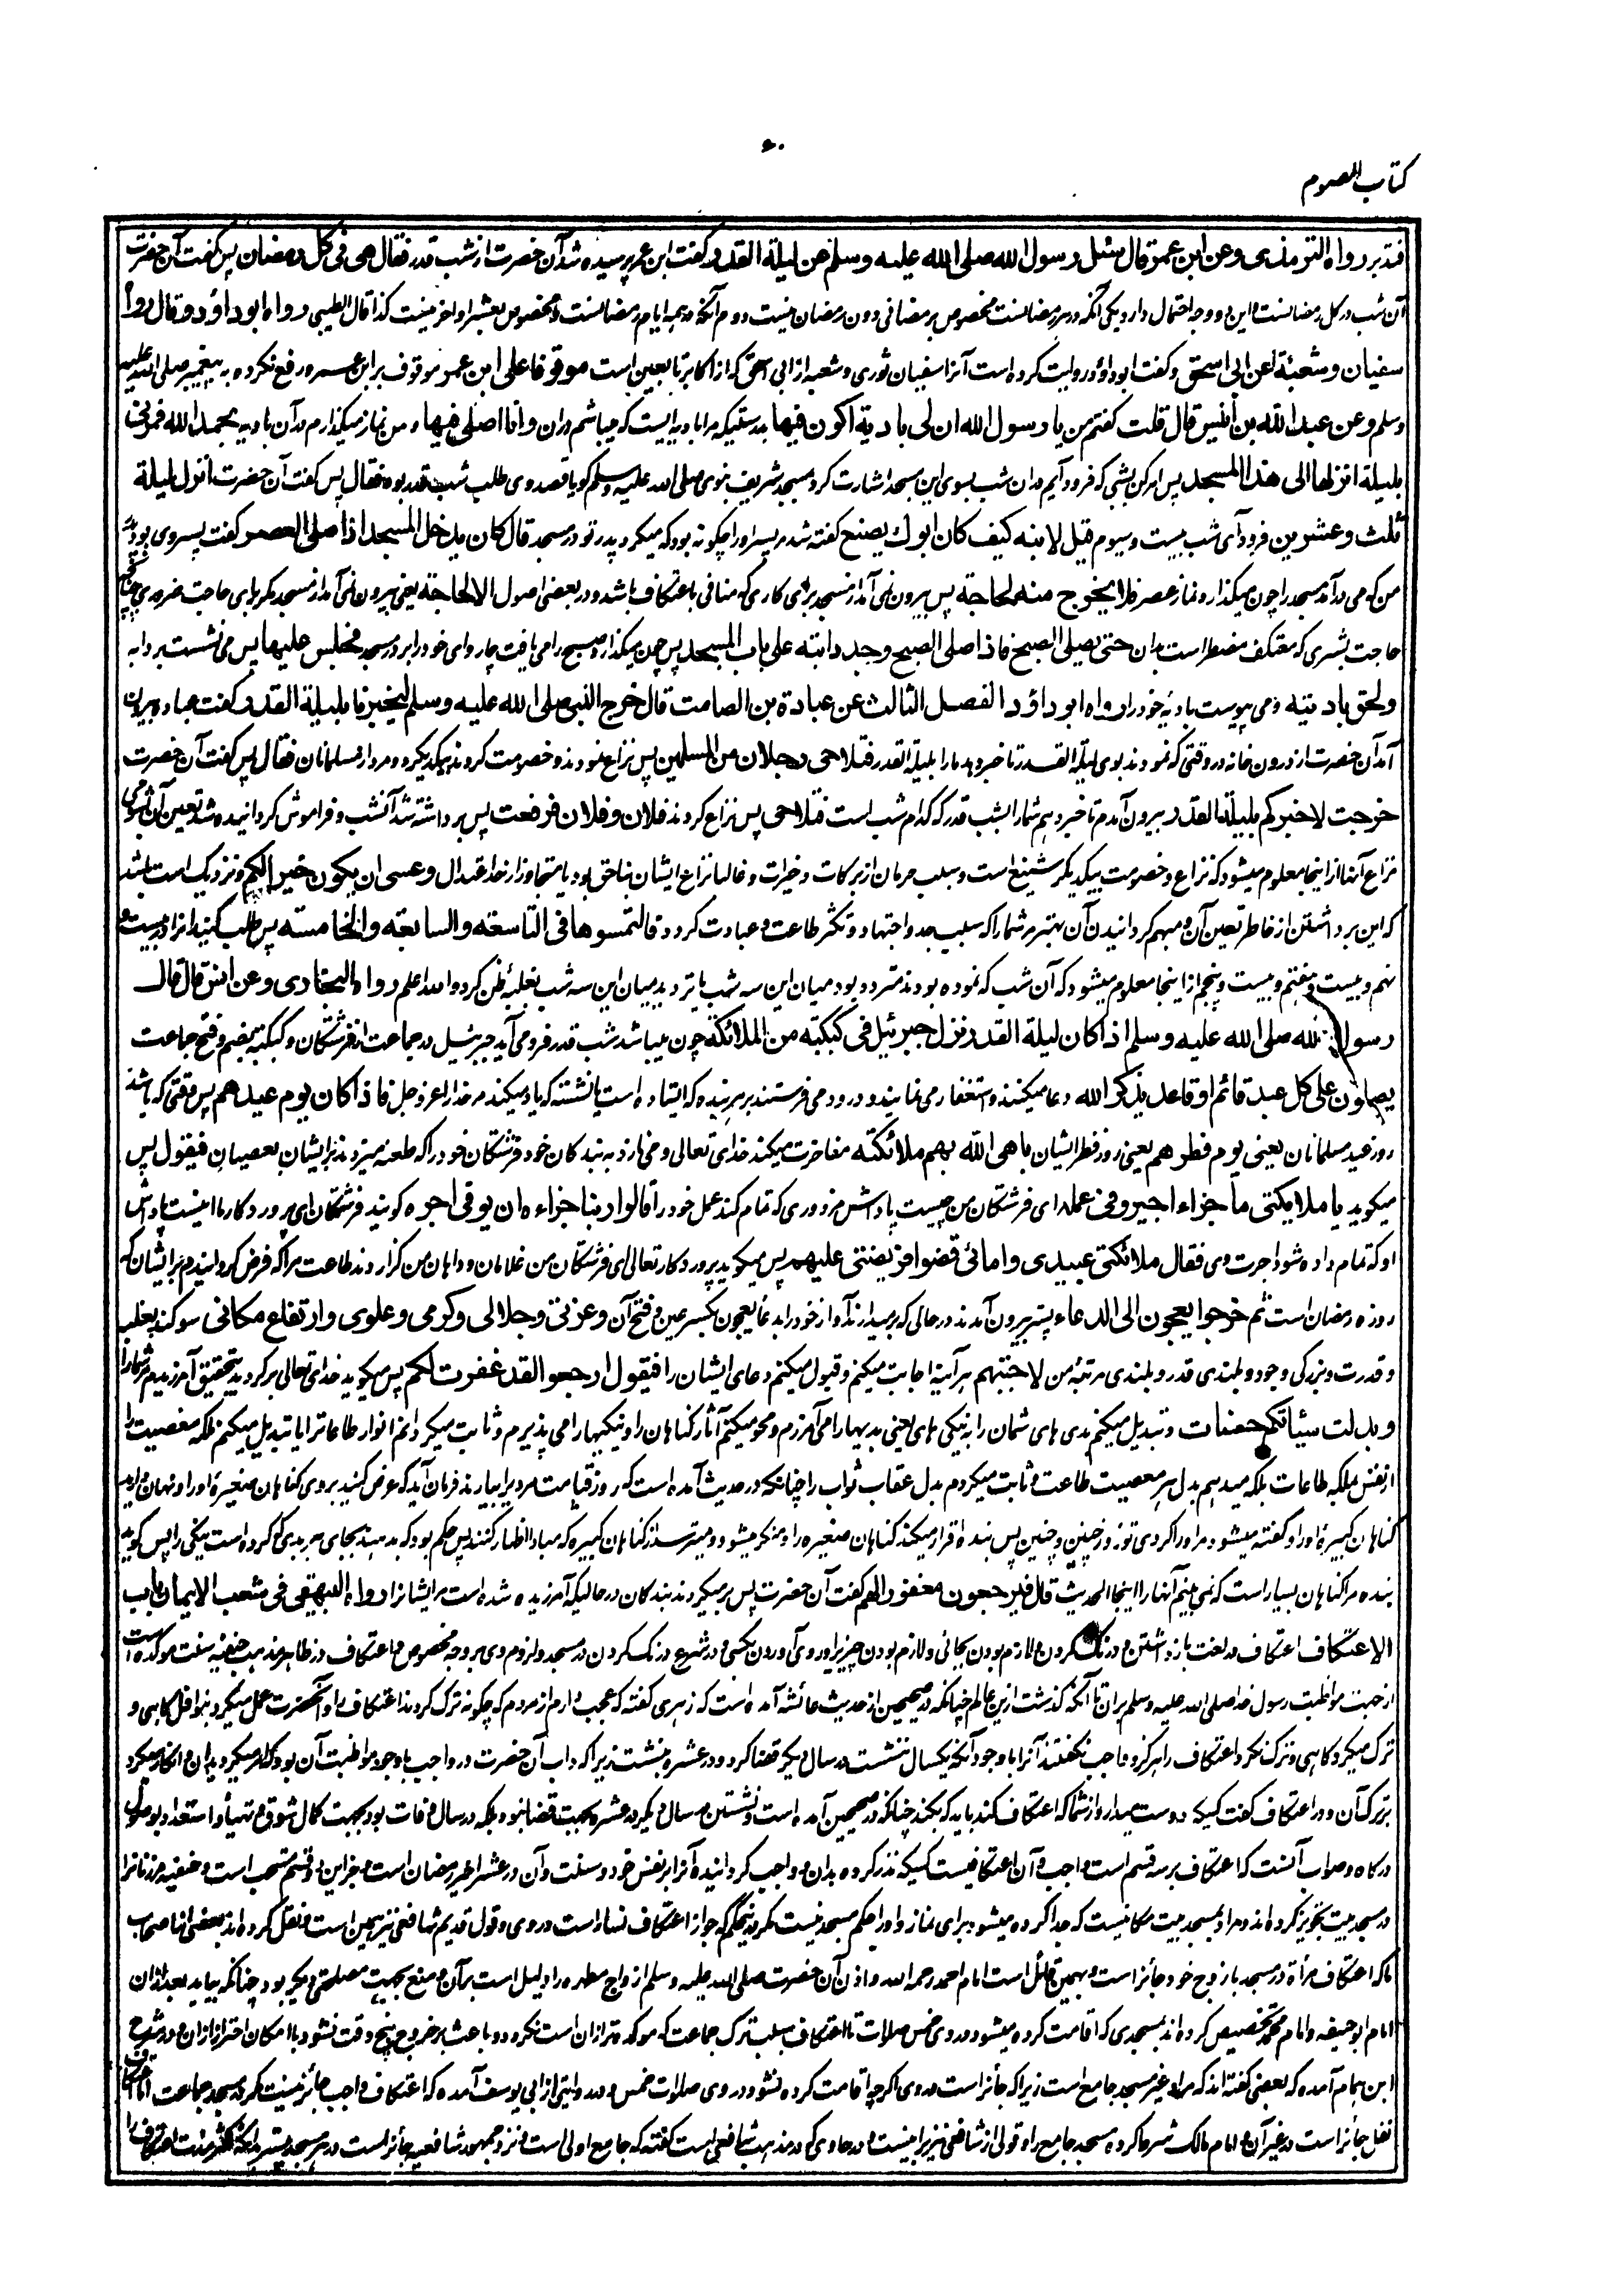 کتاب الصوم
فتدبر رواه الترمذی وعن ابن عمر قال سئل رسول الله صلی الله علیه وسلم عن لیلة القدر گفت ابن عمر پرسیده شد آن حضرت از شب قدر فقال هی فی کل رمضان پس گفت آن حضرت
آن شب در کل رمضانست و این دو وجه احتمال دارد یکی آنکه در هر رمضانست مخصوص برمضانی دون رمضان نیست دوم آنکه در همه ایام رمضانست مخصوص بعشر اواخر نیست کذا قال الطیبی رواه ابو داؤد وقال رواه
سفیان و شعبة عن ابی اسحق و گفت ابو داؤد روایت کرده است آنرا سفیان ثوری و شعبه از ابی اسحق که از اکابر تابعین است موقوفا علی ابن عمر موقوف بر ابن عمر و رفع نکرده به پیغمبر صلی الله علیه
وسلم وعن عبد الله بن انیس قال قلت گفتم من یا رسول الله ان لی بادیة اکون فیها بدرستیکه مرا بادیه ایست که میباشم دران وانا اصلی فیها و من نماز میگذارم در آن بادیه بحمد الله فمرنی
بلیلة انزلها الی هذا المسجد پس امر کن بشبی که فرود آیم دران شب بسوی این مسجد اشارت کرد مسجد شریف نبوی صلی الله علیه وسلم گویا قصد وی طلب شب قدر بوده فقال پس گفت آن حضرت انزل لیلة
ثلث وعشرین فرود آی شب بیست و سیوم قیل لابنه کیف کان ابوك یصنع گفته شد مر پسر او را چگونه بود که میکرد پدر تو در مسجد قال کان یدخل المسجد اذا صلی العصر گفت پسر وی بود پدر
من که می درآمد مسجد را چون میگذارد نماز عصر فلا یخرج منه لحاجة پس بیرون نمی آمد از مسجد برای کاری که منافی باعتکاف باشد و در بعضی اصول الا لحاجة یعنی بیرون نمی آمد از مسجد مگر برای حاجت ضروری
حاجت بشری که معتکف مضطر است بدان حتی یصلی الصبح فاذا صلی الصبح وجد دابته علی باب المسجد پس چون میگذارد صبح را می یافت چاروای خود را بر در مسجد فجلس علیها پس می نشست بر دابه
ولحق بادیته و می پیوست بادیه خود را رواه ابو داؤد الفصل الثالث عن عبادة بن الصامت قال خرج النبی صلی الله علیه وسلم لیخبرنا بلیلة القدر گفت عباده بیرون
آمد آن حضرت از درون خانه در وقتی که نمودند بوی لیلة القدر تا خبر دهد ما را بلیلة القدر فتلاحی رجلان من المسلمین پس نزاع نمودند و خصومت کردند بیکدیگر دو مرد از مسلمانان فقال پس گفت آن حضرت
خرجت لاخبرکم بلیلة القدر بیرون آمدم تا خبر دهم شما را بشب قدر که کدام شب است فتلاحی پس نزاع کردند فلان و فلان فرفعت پس برداشته شد آنشب و فراموش گردانیده شد تعین آن
نزاع آنها از اینجا معلوم میشود که نزاع و خصومت بیکدیگر شنیع است و سبب حرمان از برکات و خیرات و غالبا نزاع ایشان بناحق بود یا متجاوز از حد اعتدال وعسی ان یکون خیرا لکم و نزدیک است باشد
که این برداشتن از خاطر تعین آن و مبهم گردانیدن آن بهتر مر شما را که سبب جد و اجتهاد و تکثر طاعت و عبادت گردد فالتمسوها فی التاسعه والسابعه والخامسه پس طلب کنید آنرا در بیست و
نهم و بیست و هفتم و بیست و پنجم از اینجا معلوم میشود که آن شب که نموده بودند متردد بود میان این سه شب یا تردید میان این سه شب بغلبه ظن کرد والله اعلم رواه البخاری وعن انس قال قال
رسول الله صلی الله علیه وسلم اذا کان لیلة القدر نزل جبرئیل فی کبکبه من الملائکة چون میباشد شب قدر فرو می آید جبرئیل در جماعت از فرشتگان و کبکبه بضم و فتح جماعت
یصلون علی کل عبد قائم او قاعد یذکر الله دعا میکنند و استغفار می نمایند و درود می فرستند بر هر بنده که ایستاده است یا نشسته که یاد میکند مر خدا را عز و جل فاذا کان یوم عیدهم پس وقتی که باشد
روز عید مسلمانان یعنی یوم فطرهم یعنی روز فطر ایشان باهی الله بهم ملائکته مفاخرت میکند خدای تعالی و می نازد به بندگان خود فرشتگان خود را که طعنه میزدند بر ایشان بعصیان فیقول پس
میگوید یا ملائکتی ما جزاء اجیر وفی عمله ای فرشتگان من چیست پاداش مزدوری که تمام کند عمل خود را قالوا ربنا جزاءه ان یوفی اجره گویند فرشتگان ای پروردگار ما اینست پاداش
او که تمام داده شود اجرت وی فقال ملائکتی عبیدی وامائی قضوا فریضتی علیهم پس میگوید پروردگار تعالی ای فرشتگان من غلامان و داهان من گزاردند طاعت مرا که فرض گردانیدم بر ایشان که
روزه رمضان است ثم خرجوا یعجون الی الدعاء پستر بیرون آمدند در حالی که بر میدارند آواز خود را بدعا یعجون بکسر عین و فتح آن وعزتی وجلالی وکرمی وعلوی وارتفاع مکانی سوگند بغلبه
و قدرت و بزرگی وجود و بلندی قدر و بلندی مرتبهٔ من لاجیبنهم هر آئینه اجابت میکنم و قبول میکنم دعای ایشان را فیقول ارجعوا قد غفرت لکم پس میگوید خدای تعالی برگردید بتحقیق آمرزیدم شما را
وبدلت سیئاتکم حسنات و تبدیل میکنم بدی های شمان را به نیکی های یعنی بدیها را می آمرزم و محو میکنم آثار گناهان را و نیکیها را می پذیرم و ثابت میگردانم انوار طاعات را یا تبدیل میکنم ملکه معصیت را
از نفس بملکه طاعات بلکه میدهم بدل هر معصیت طاعت و ثابت میگردم بدل عقاب ثواب را چنانکه در حدیث آمده است که روز قیامت مردیرا بیارند فرمان آید که عرض کنید بروی گناهان صغیره او را و نهان دارید
گناهان کبیره او را و گفته میشود مر او را کردی تو روز چنین و چنین پس بنده اقرار میکند گناهان صغیره را و منکر نمیشود و میترسد از گناهان کبیره که مبادا اظهار کنند پس حکم بود که بدهید بجای هر بدی که کرده است نیکی را پس گوید
بنده مرا گناهان بسیار است که نمی بینم آنها را اینجا الحدیث قال فیرجعون مغفورا لهم گفت آن حضرت پس بر میگردند بندگان در حالیکه آمرزیده شده است مر ایشانرا رواه البیهقی فی شعب الایمان باب
الاعتکاف اعتکاف در لغت باز داشتن و درنگ کردن و ملازم بودن بجائی و لازم بودن چیزیرا و روی آوردن بکسی و در شرع درنگ کردن در مسجد و لزوم وی بر وجه مخصوص و اعتکاف در ظاهر مذهب حنفیه سنت موکده است
از جهت مواظبت رسول خدا صلی الله علیه وسلم بران تا آنکه گذشت ازین عالم چنانکه در صحیحین از حدیث عائشه آمده است که زهری گفته که عجب دارم از مردم که چگونه ترک کردند اعتکاف را و آنحضرت عمل میکرد بنوافل گاهی و
ترک میکرد گاهی و ترک نکرد اعتکاف را هرگز و واجب نگفتند آنرا با وجود آنکه یکسال ننشست و در سال دیگر قضا کرد و در عشره بنشست زیرا که داب آن حضرت در واجب با وجود مواظبت آن بود که امر میکرد بدان و انکار میکرد
بترک آن و در اعتکاف گفت کسیکه دوست میدارد از شما که اعتکاف کند باید که بکند چنانکه در صحیحین آمده است و نشستن در سال دیگر در عشره بجهت قضا نبود بلکه در سال وفات بود بجهت کمال شوق و تهیأ و استعداد بوصول
درگاه و صواب آنست که اعتکاف بر سه قسم است واجب و آن اعتکافیست کسیکه نذر کرده بدان و واجب گردانیده آنرا بر نفس خود و سنت و آن در عشر اخیر رمضان است و جز این دو قسم مستحب است و حنفیه مر زنانرا
در مسجد بیت تجویز کرده اند و مراد بمسجد بیت مکانیست که جدا کرده میشود برای نماز و او را حکم مسجد نیست مگر در حکم که جواز اعتکاف نساء است در وی و قول قدیم شافعی نیز همین است و نقل کرده اند بعضی از اصحاب
ما که اعتکاف مرأة در مسجد با زوج خود جائز است و بهمین قائل است امام احمد رحمه الله و اذن آن حضرت صلی الله علیه وسلم ازواج مطهره را دلیل است بر آن و منع بجهت مصلحتی دیگر بود چنانکه بیاید بعد ازان
امام ابو حنیفه و امام محمد تخصیص کرده اند بمسجدی که اقامت کرده میشود در وی خمس صلوات تا اعتکاف سبب ترک جماعت که موکد تر ازان است نگردد و باعث بر خروج پنج وقت نشود با امکان احتراز ازان و در شرح
ابن همام آمده که بعضی گفته اند که مراد غیر مسجد جامع است زیرا که جائز است در وی اگرچه اقامت کرده نشود در وی صلوات خمس و در روایتی از ابی یوسف آمده که اعتکاف واجب جائز نیست مگر در مسجد جماعت
نفل جائز است در غیر آن و امام مالک شرط کرده مسجد جامع را و قولی از شافعی نیز برینست و در حاوی که در مذهب شافعی است گفته که جامع اولی است و نزد جمهور شافعیه جائز است در هر مسجد